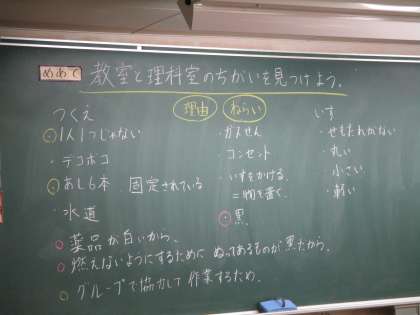 めあて 教室と理科室のちがいを見つけよう。
理由 ねらい
つくえ
・1人1つじゃない
・デコボコ
・あし6本 固定されている
・水道
・ガスせん
・コンセント
・いすをかける
=物を置く。
・黒
いす
・せもたれがない
・丸い
・小さい
・軽い
・薬品が白いから。
・燃えないようにするためにぬってあるものが黒だから。
・グループで協力して作業するため。